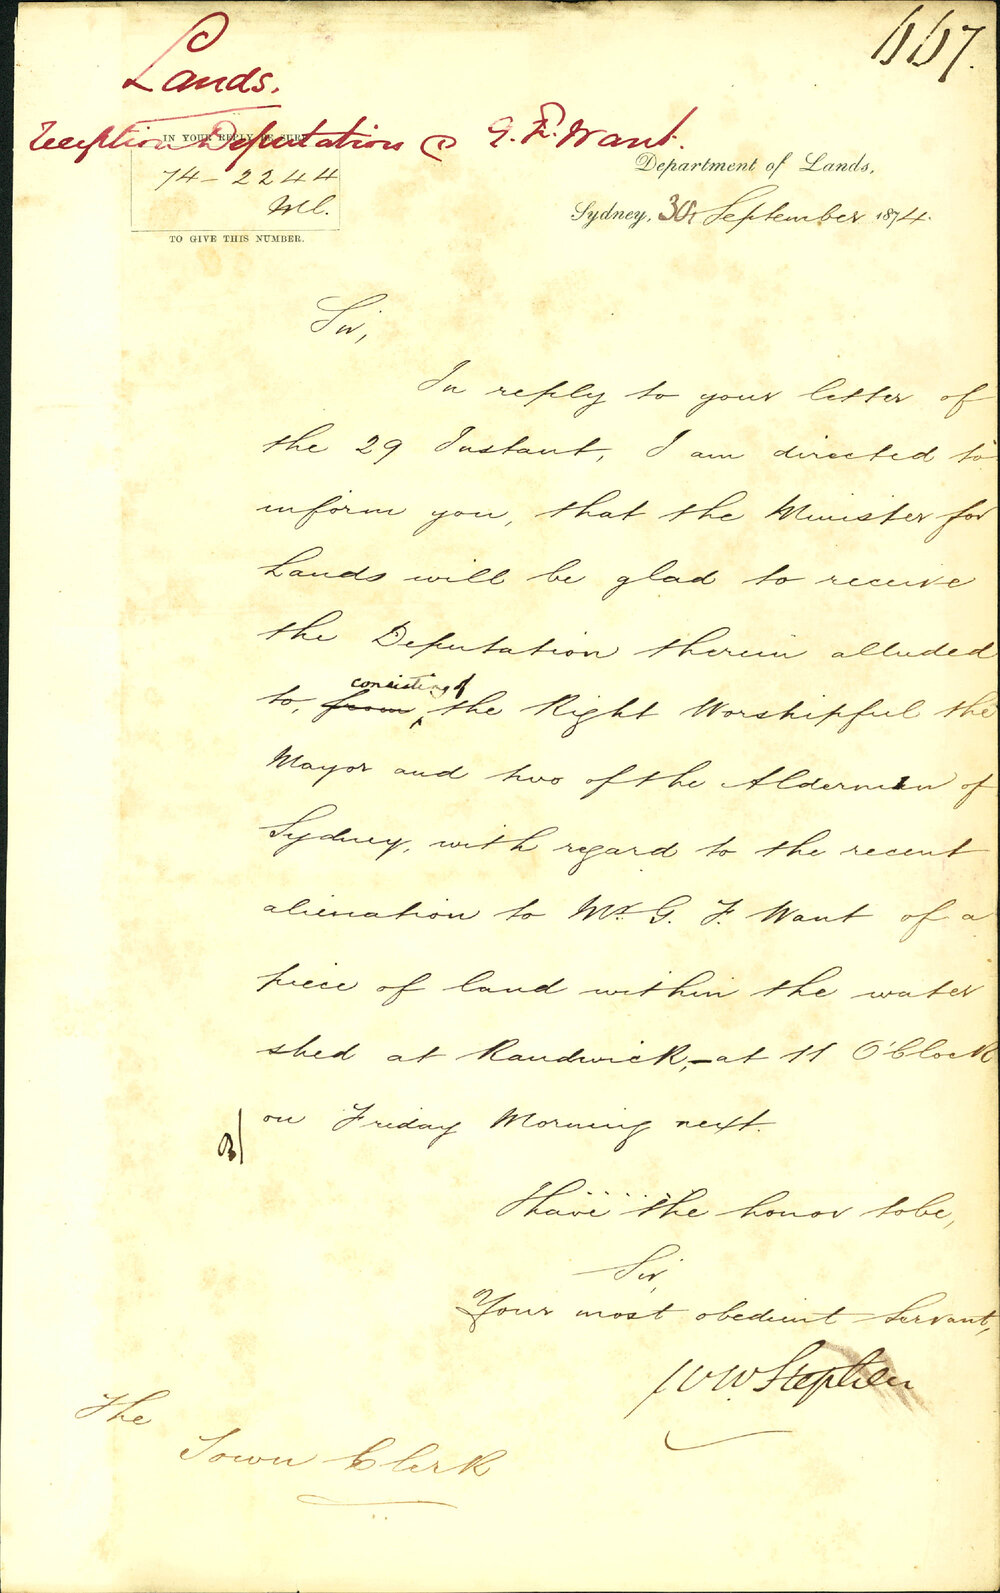 667.
Lands.
Reception Deputation @ G. F. Want.
IN YOUR REPLY BE SURE
74-2244
Ml.
TO GIVE THIS NUMBER.
Department of Lands,
Sydney, 30 September 1874.
Sir,
In reply to your letter of
the 29 Instant, I am directed to
inform you, that the Minister for
Lands will be glad to receive
the Deputation therein alluded
consisting of
to, from the Right Worshipful the
Mayor and two of the Aldermen of
Sydney, with regard to the recent
alienation to Mr. G. F. Want of a
piece of land within the water
shed at Randwick,-at 11 O'Clock
on Friday Morning next.
I have the honor to be,
Sir,
Your most obedient Servant,
W W Stephen
The
Town Clerk